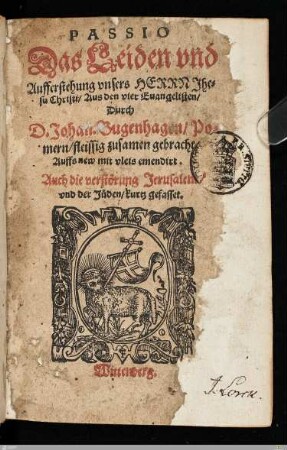 PASSIO
Das Leiden vnd
Aufferstehung vnsers HERRN Jhe-
su Christi/ Aus den vier Euangelisten/
Durch
D. Johan. Bugenhagen/ Po-
mern/ fleissig zusamen gebracht
Auffs new mit vleis emendirt.
Auch die verstörung Jerusalem/
vnd der Jüden/ kurtz gefasset.
Wittenberg.